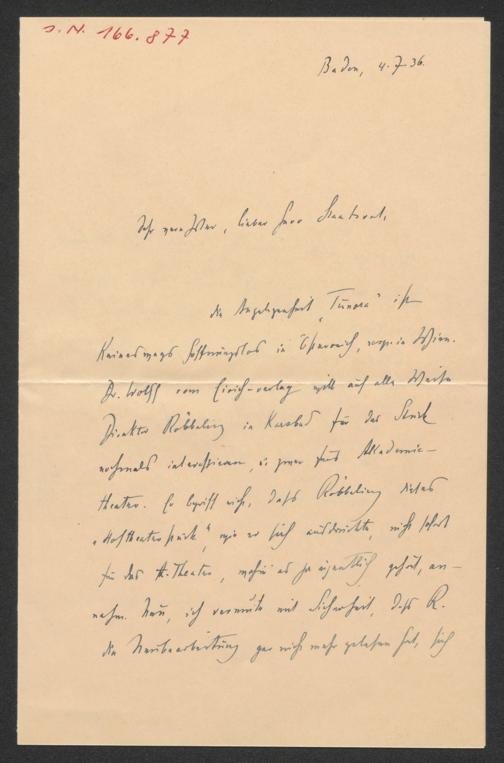 J.N. 166.877
Baden, 4.7.36.
Sehr verehrter, lieber Herr Staatsrat,
die Angelegenheit „Timora" ist
keineswegs hoffnungslos in Österreich, resp. in Wien.
Dr. Wolff vom Eirich-verlag will auf alle Weise
Direktor Röbbeling in Karlsbad für das Stück
nochmals interessieren, u. zwar fürs Akademie-
theater. Er begriff nicht, daß Röbbeling dieses
„Hoftheaterstück", wie er sich ausdrückte, nicht sofort
für das A.Theater, wohin es ja eigentlich gehört, an-
nahm. Nun, ich vermute mit Sicherheit, daß R.
die Neubearbeitung gar nicht mehr gelesen hat, sich